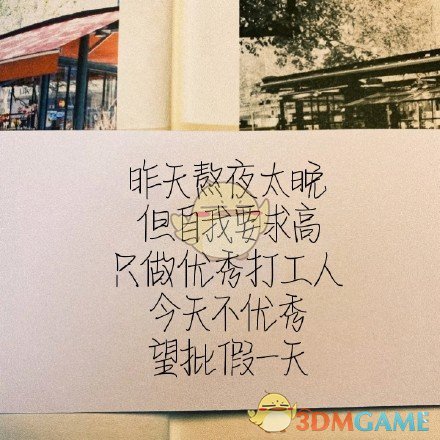 昨天熬夜太晚
但自我要求高
只做优秀打工人
今天不优秀
望批假一天
3DMGAME